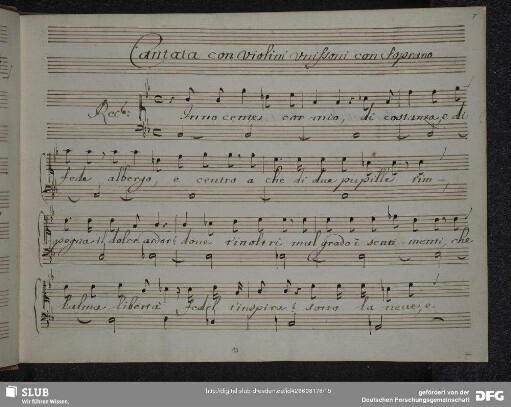 7
Cantata con Violini Unissoni con Soprano
Rec.:
Innocente cor mio, di costanza, e di
fede albergo e centro a che di due pupille rim-
pogna il dolce ardor: doue rivolvi mal grado i senti menti, che
l'alma libertà fedel t'inspira: sotto la neue, e
SLUB
Wir führen Wissen.
http://digital.slub-dresden.de/id426608178/15
gefördert von der
Deutschen Forschungsgemeinschaft
DFG